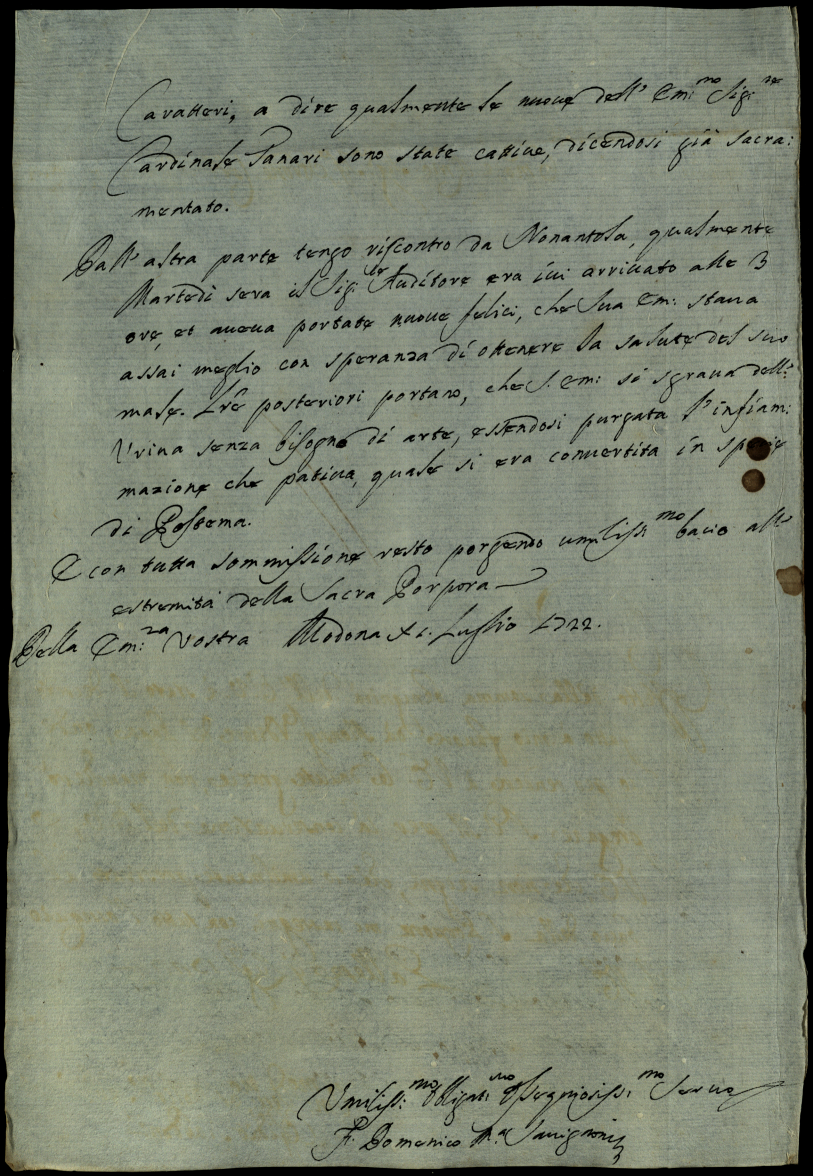 Caratteri, a dire qualmente le nuove dell' Em:mo Sig:re
Cardinale Tanari sono state cattive, dicendosi già sacra:
mentato.
Dall'altra parte tengo riscontro da Nonantola, qualmente
Martedì sera il Sig:r Auditore era ivi arrivato alle 3
ore, et aveva portate nuove felici, che Sua Em: stava
assai meglio con speranza di ottenere la salute del suo
male. Lr̃e posteriori portano, che S. Em: si sgrava dell'
Urina senza bisogno di arte, essendosi purgata l'infiam:
mazione che pativa, quale si era convertita in specie
di Postema.
E con tutta sommissione resto porgendo umiliss:mo bacio all'
estremità della Sacra Porpora
Della Em:za Vostra Modona XI. Luglio 1722.
Umiliss:mo Obligat:mo Ossequiosiss:mo Servo
F. Domenico M.a